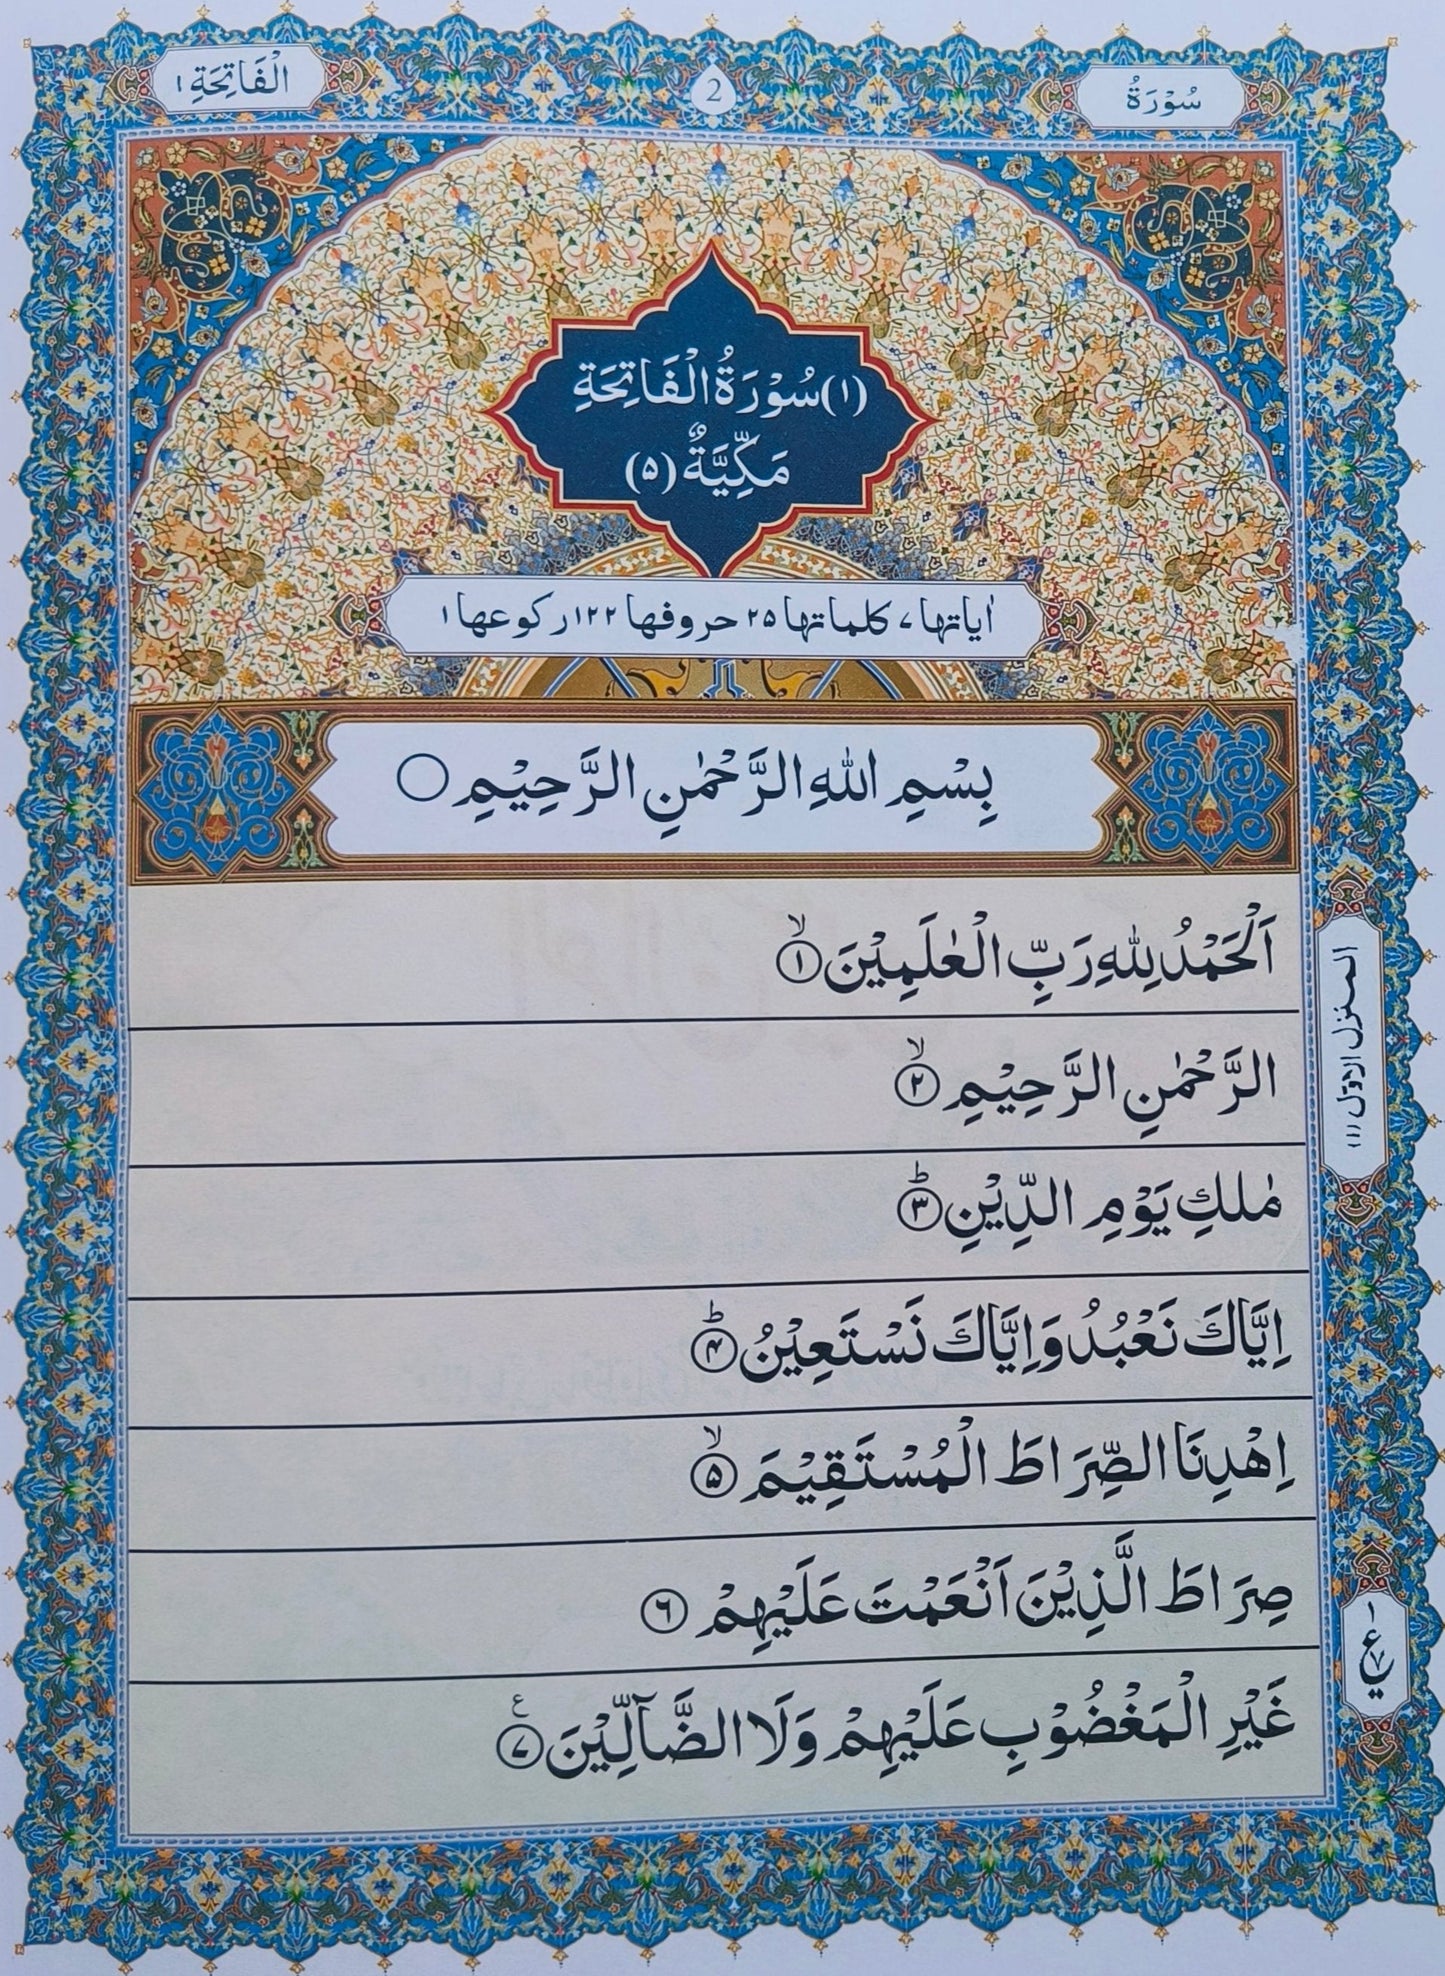 سُوْرَةُ
2
الْفَاتِحَةِ ١
(١) سُوْرَةُ الْفَاتِحَةِ
مَكِّيَّةٌ (۵)
اٰیاتها ۷ کلماتها ۲۵ حروفها ۱۲۲ رکوعها ۱
بِسْمِ اللهِ الرَّحْمٰنِ الرَّحِيْمِ ○
اَلْحَمْدُ لِلّٰهِ رَبِّ الْعٰلَمِيْنَ ۙ﴿۱﴾
الرَّحْمٰنِ الرَّحِيْمِ ۙ﴿۲﴾
مٰلِكِ يَوْمِ الدِّيْنِ ؕ﴿۳﴾
اِيَّاكَ نَعْبُدُ وَاِيَّاكَ نَسْتَعِيْنُ ؕ﴿۴﴾
اِهْدِنَا الصِّرَاطَ الْمُسْتَقِيْمَ ۙ﴿۵﴾
صِرَاطَ الَّذِيْنَ اَنْعَمْتَ عَلَيْهِمْ ﴿۶﴾
غَيْرِ الْمَغْضُوْبِ عَلَيْهِمْ وَلَا الضَّآلِّيْنَ ﴿۷﴾ ع
المنزل الاوّل (١)
١
ع
۷